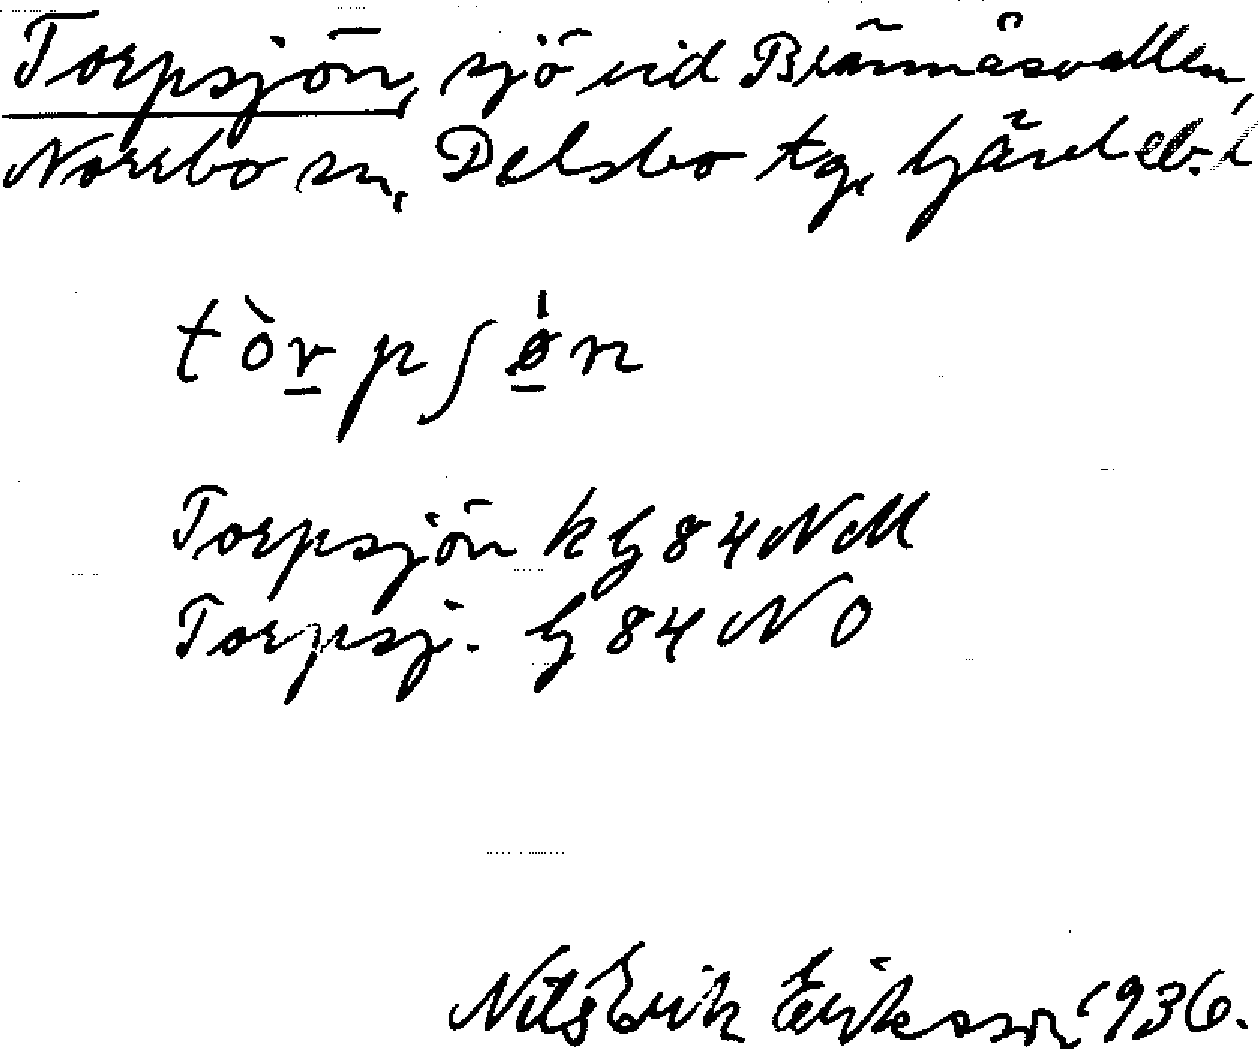 Torpsjön, sjö vid Brännåsvallen,
Norrbo sn, Delsbo tg,
tòrpʃøn
Torpsjön k g 84 NM
Torpsj. g 84 NO
Nils Erik Eriksson 1936.